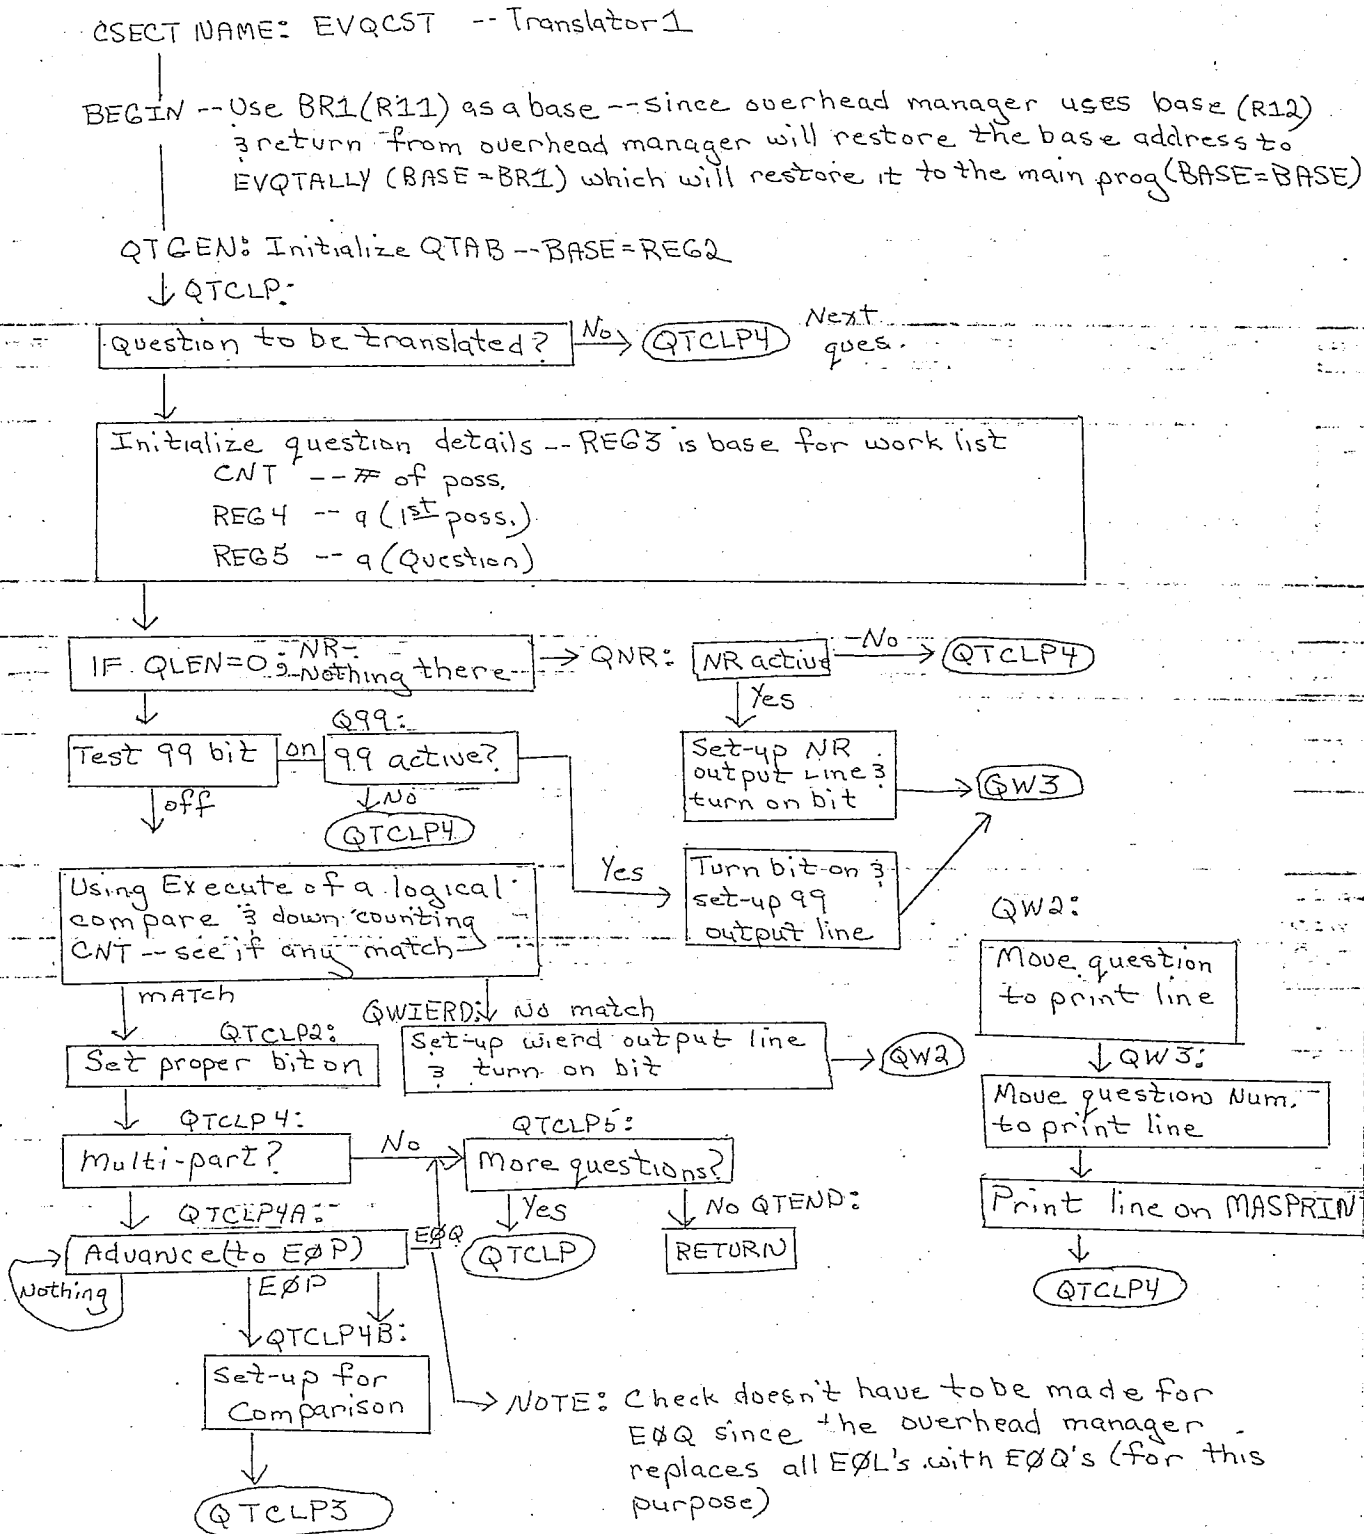 CSECT NAME: EVQCST -- Translator1
BEGIN -- Use BR1(R11) as a base -- since overhead manager uses base (R12)
& return from overhead manager will restore the base address to
EVQTALLY (BASE=BR1) which will restore it to the main prog (BASE=BASE)
QTGEN: Initialize QTAB -- BASE=REG2
QTCLP:
Question to be translated?
No
QTCLP4
Next
ques.
Initialize question details -- REG3 is base for work list
CNT -- # of poss.
REG4 -- a (1st poss.)
REG5 -- a (Question)
IF QLEN=0 : NR-
& Nothing there
QNR:
NR active
No
QTCLP4
Yes
Set-up NR
output Line &
turn on bit
QW3
Test 99 bit
on
Q99:
99 active?
off
No
QTCLP4
Yes
Turn bit on &
set-up 99
output line
Using Execute of a logical
compare & down counting
CNT -- see if any match
MATCH
QWIERD: No match
Set-up wierd output line
& turn on bit
QW2
QTCLP2:
Set proper bit on
QW2:
Move question
to print line
QW3:
Move question Num.
to print line
Print line on MASPRIN
QTCLP4
QTCLP4:
Multi-part?
No
QTCLP5:
More questions?
Yes
QTCLP
No QTEND:
RETURN
QTCLP4A:
Advance (to EØP)
EØQ
Nothing
EØP
QTCLP4B:
Set-up for
Comparison
QTCLP3
NOTE: Check doesn't have to be made for
EØQ since the overhead manager
replaces all EØL's with EØQ's (for this
purpose)